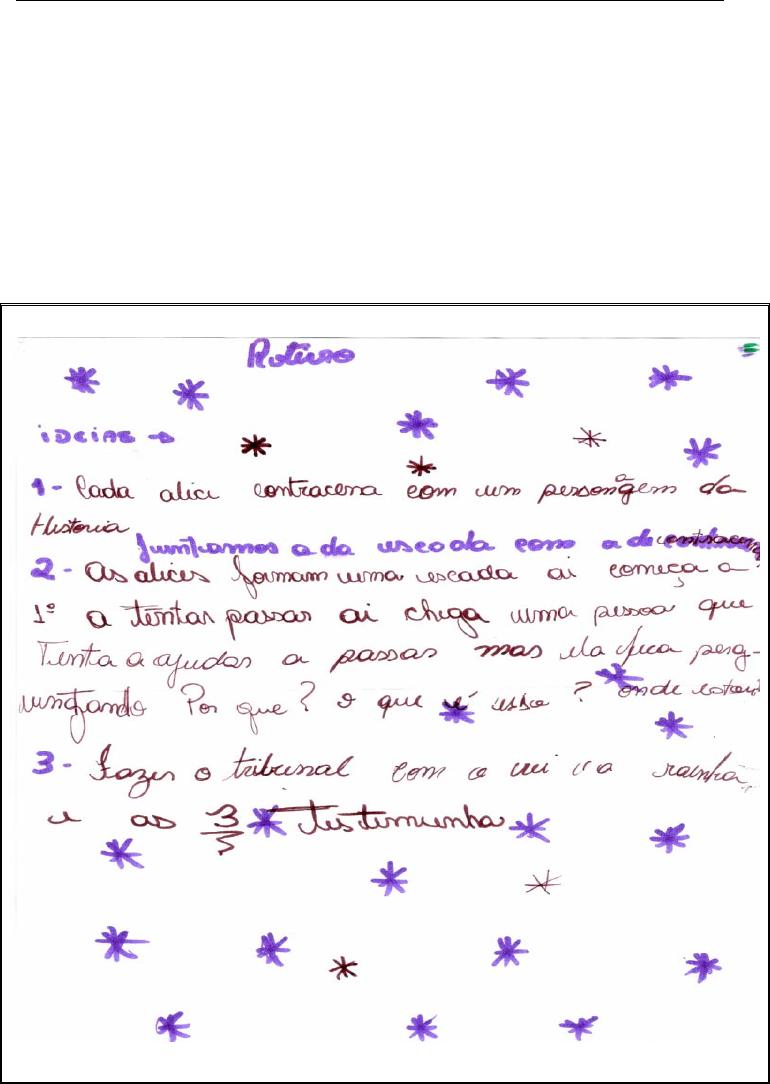 Roteiro
iDEiAS →
1- Cada alice contracena com um personagem da
Historia
Juntamos a da escada com a de contracena
2- As alices formam uma escada ai começa a
1º a tentar passar ai chega uma pessoa que
Tenta a ajudar a passar mas ela fica perg-
untando Por que? O que é isso? onde estou?
3- Fazer o tribunal com o rei e a rainha
e as 3 Testemunha